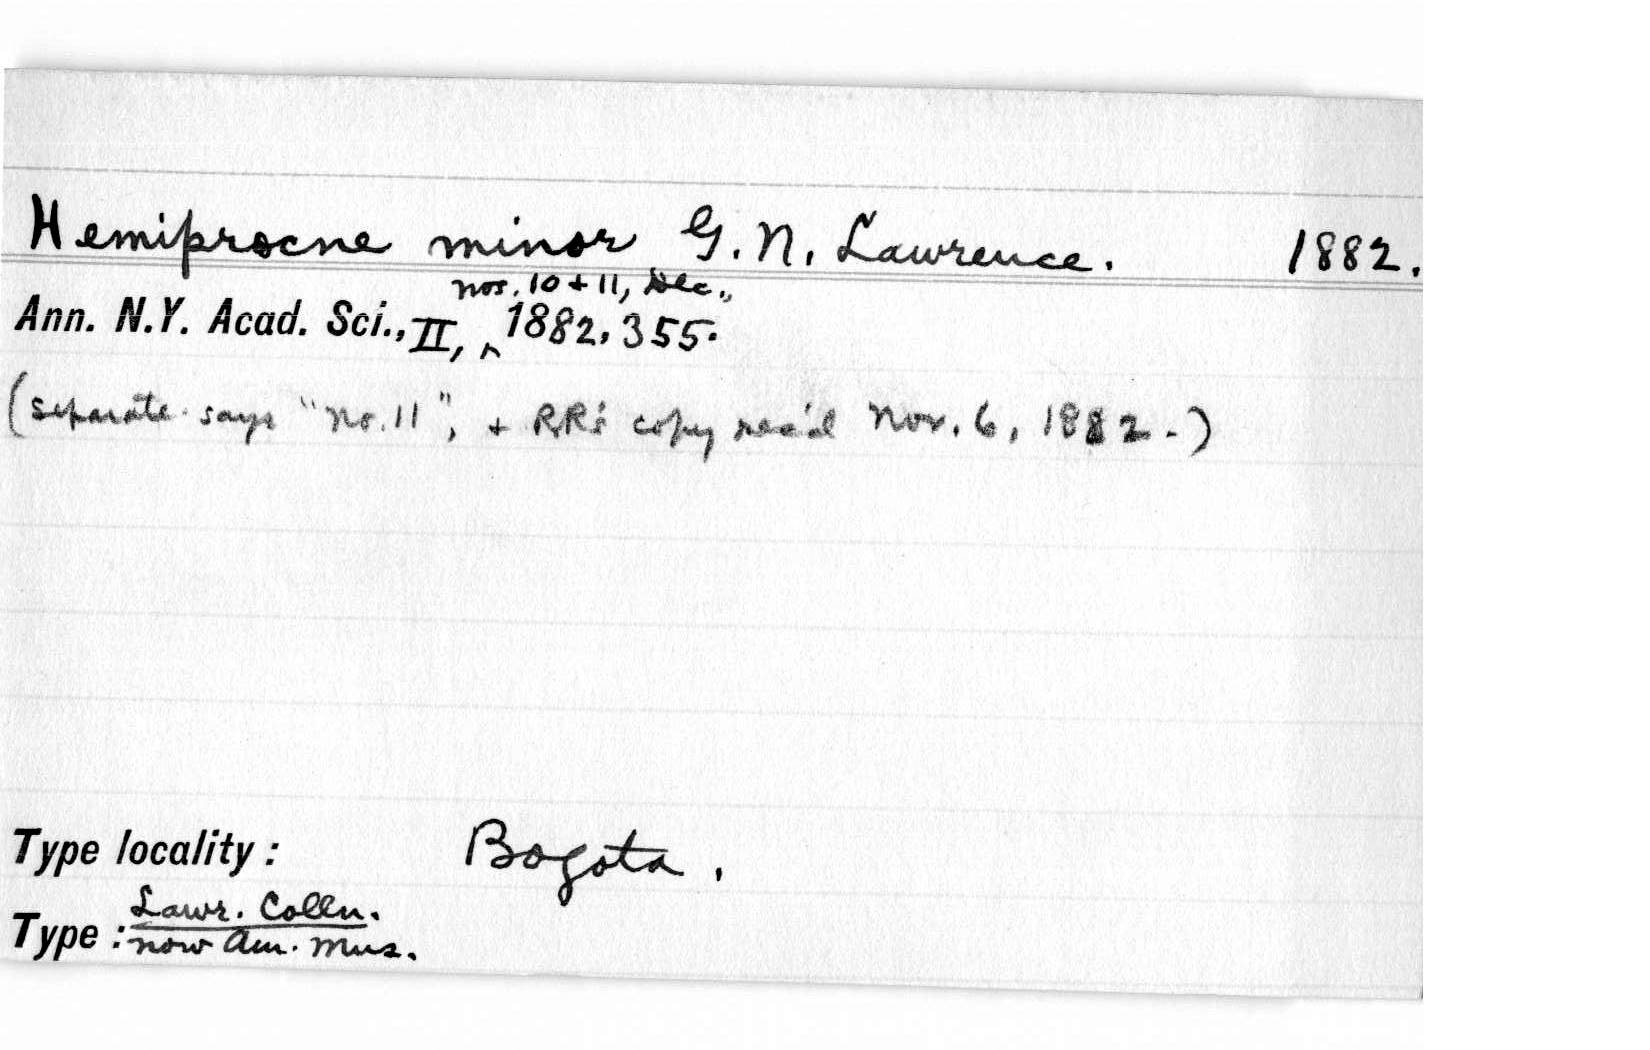 Hemiprocne minor G. N. Lawrence. 1882.
nos. 10 + 11, Dec.,
Ann. N.Y. Acad. Sci., II, ^ 1882, 355.
(separate says "No. 11", + RR's copy rec'd Nov. 6, 1882.)
Type locality: Bogota.
Lawr. Colln.
Type: now Am. Mus.